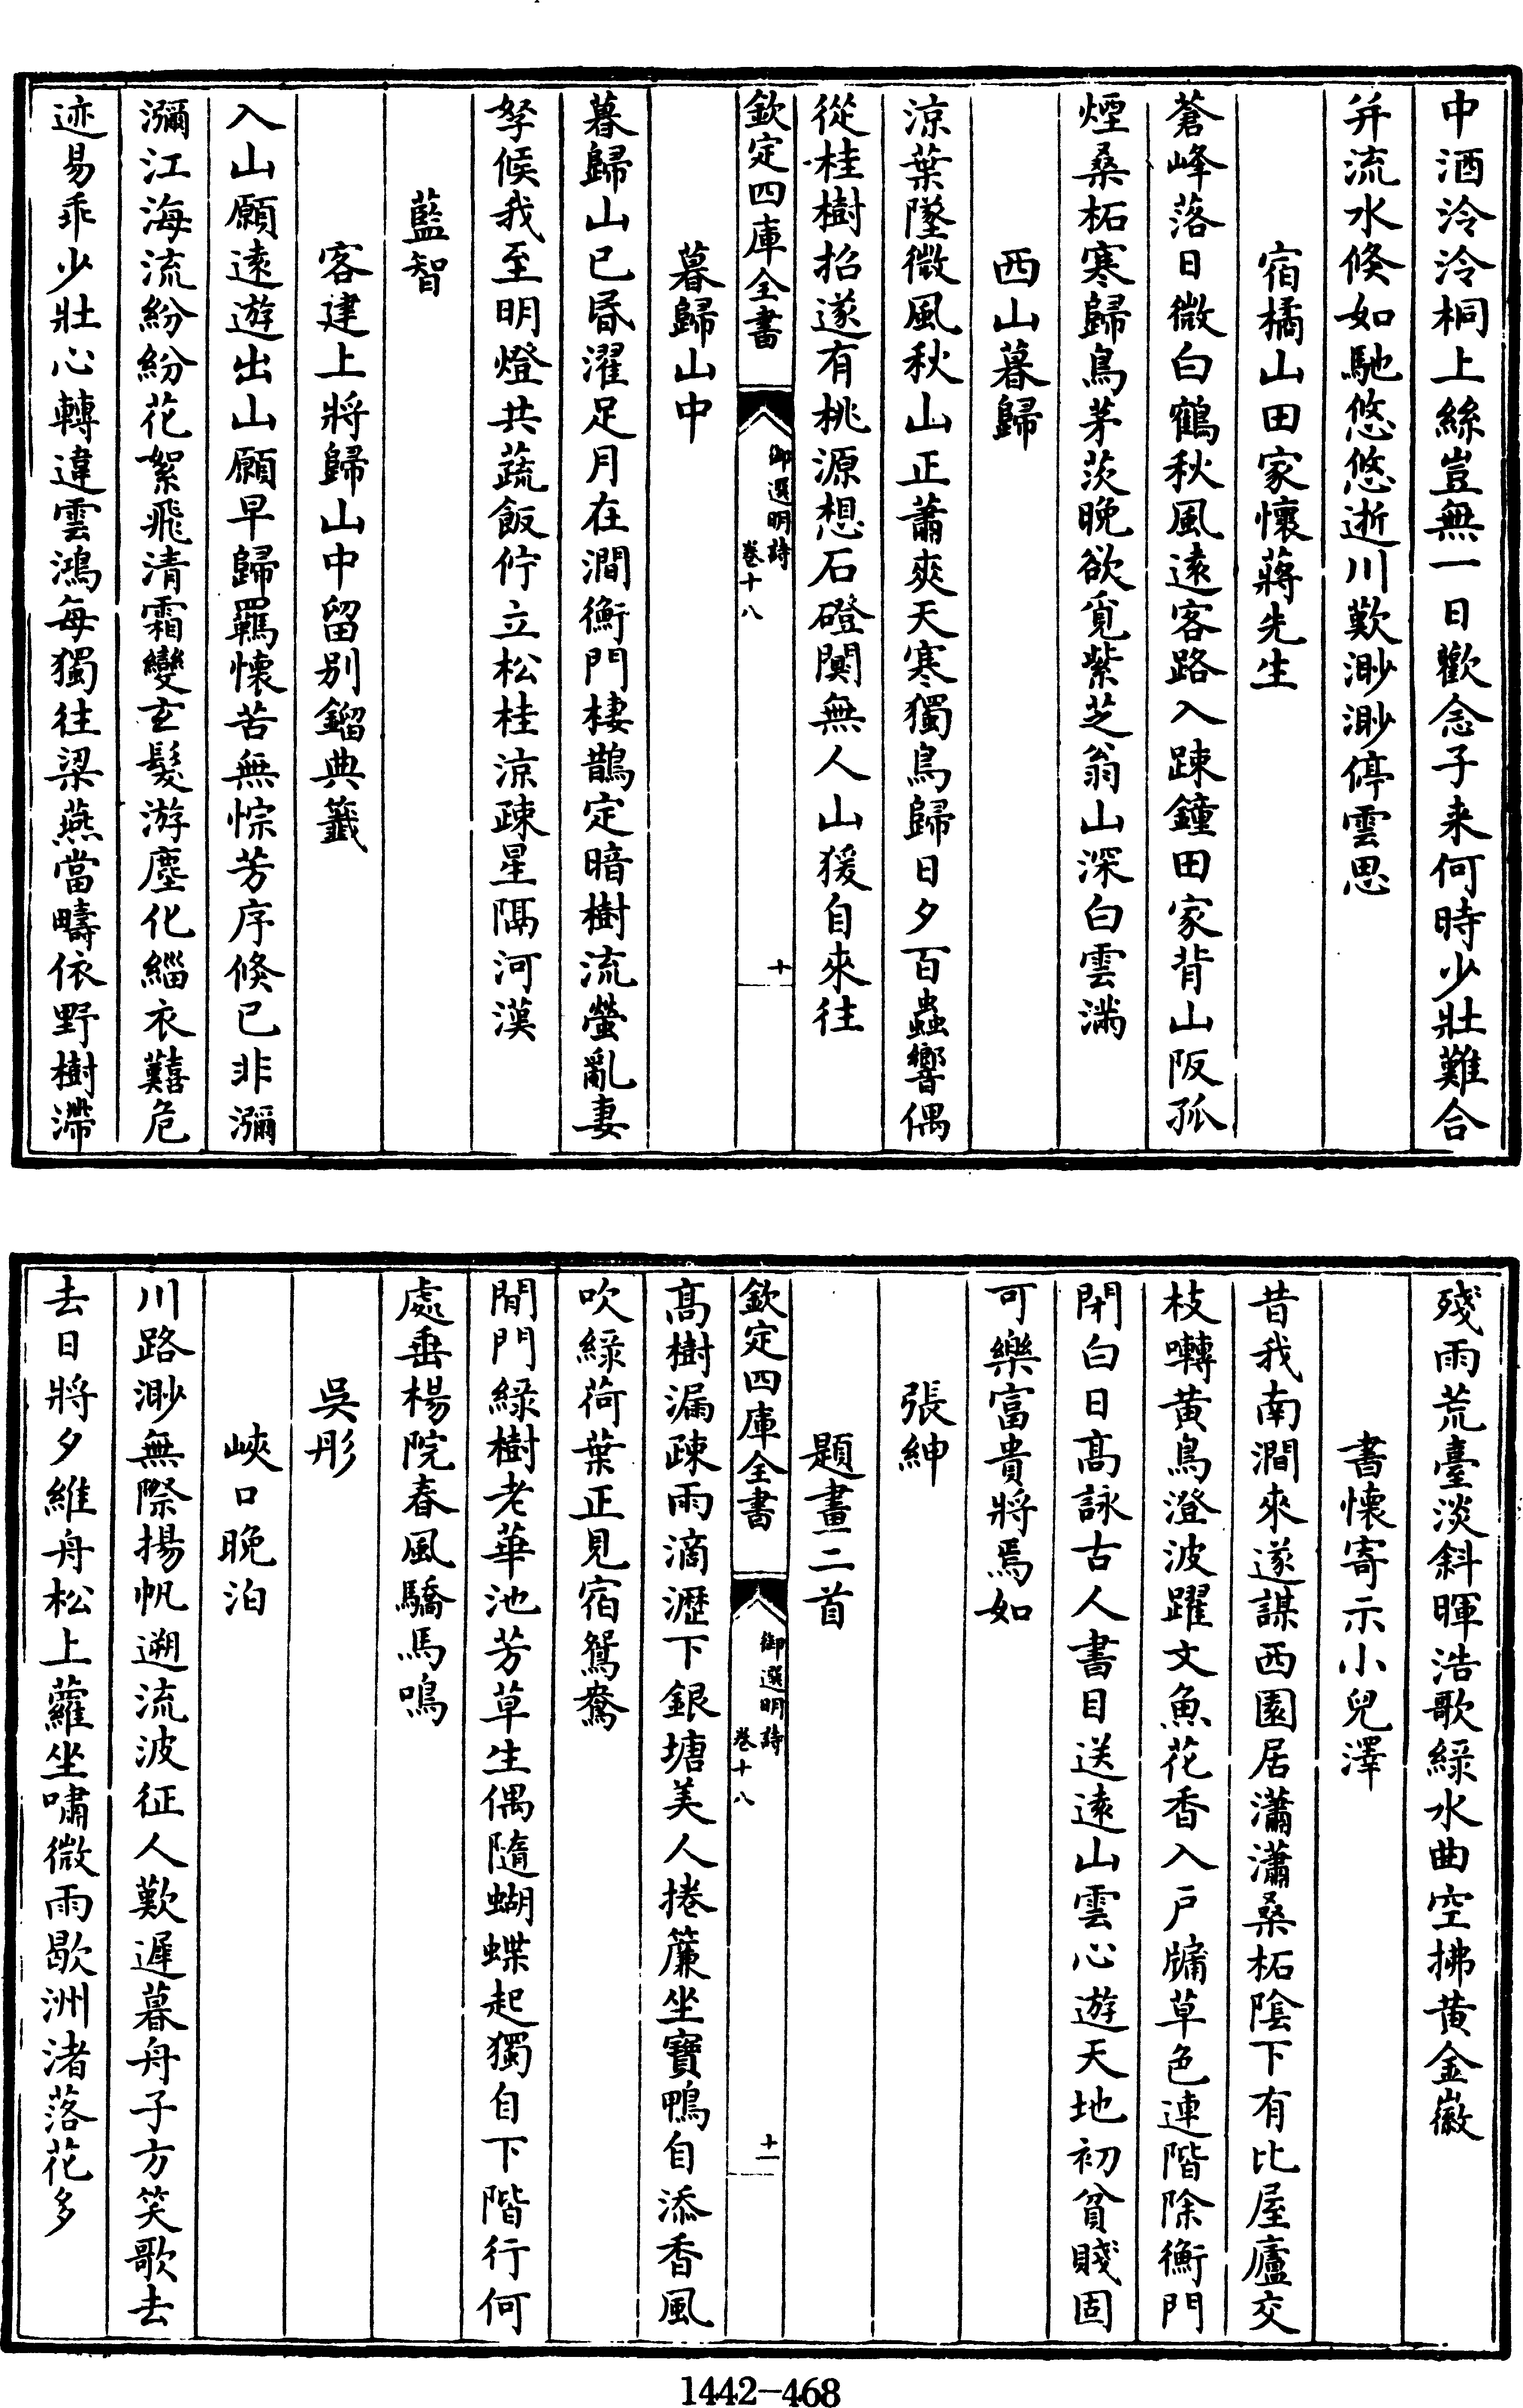 中酒泠泠桐上絲豈無一日歡念子来何時少壯難合
并流水倏如馳悠悠逝川歎渺渺停雲思
宿橘山田家懷蔣先生
蒼峰落日微白鶴秋風遠客路入踈鐘田家背山阪孤
煙桑柘寒歸鳥茅茨晚欲覓紫芝翁山深白雲滿
西山暮歸
涼葉墜微風秋山正蕭爽天寒獨鳥歸日夕百蟲響偶
從桂樹招遂有桃源想石磴闃無人山猨自來往
欽定四庫全書
御選明詩
卷十八
十
暮歸山中
暮歸山已昏濯足月在澗衡門棲鵲定暗樹流螢亂妻
孥候我至明燈共蔬飯佇立松桂涼疎星隔河漢
藍智
客建上將歸山中留别鎦典籤
入山願遠遊出山願早歸羈懷苦無悰芳序倏已非瀰
瀰江海流紛紛花絮飛清霜變玄髮游塵化緇衣囏危
迹易乖少壯心轉違雲鴻每獨往梁燕當疇依野樹滯
殘雨荒臺淡斜暉浩歌綠水曲空拂黄金徽
書懷寄示小兒澤
昔我南澗來遂謀西園居瀟瀟桑柘陰下有比屋廬交
枝囀黄鳥澄波躍文魚花香入戶牖草色連階除衡門
閉白日髙詠古人書目送遠山雲心遊天地初貧賤固
可樂富貴將焉如
張紳
題畫二首
髙樹漏疎雨滴瀝下銀塘美人捲簾坐寶鴨自添香風
吹綠荷葉正見宿鴛鴦
欽定四庫全書
御選明詩
卷十八
十一
閒門綠樹老華池芳草生偶隨蝴蝶起獨自下階行何
處垂楊院春風驕馬鳴
吳彤
峽口晚泊
川路渺無際揚帆遡流波征人歎遲暮舟子方笑歌去
去日將夕維舟松上蘿坐嘯微雨歇洲渚落花多
1442-468